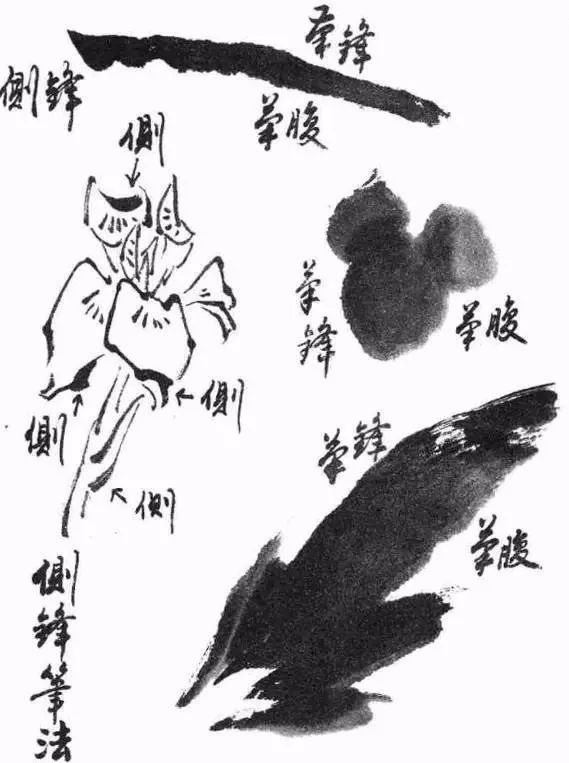 筆鋒
側鋒
筆腹
側
筆鋒
筆腹
側
側
側
筆鋒
筆腹
側鋒筆法